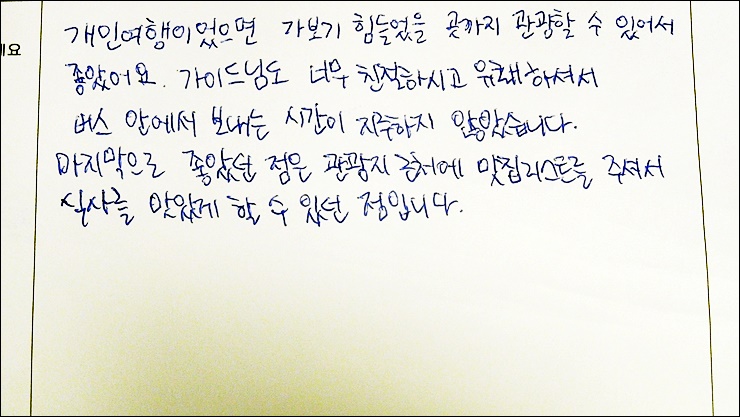 개인여행이었으면 가보기 힘들었을 곳까지 관광할 수 있어서
세요
좋았어요. 가이드님도 너무 친절하시고 유쾌하셔서
버스 안에서 보내는 시간이 지루하지 않았습니다.
마지막으로 좋았던 점은 관광지 근처에 맛집리스트를 주셔서
식사를 맛있게 할 수 있던 점입니다.